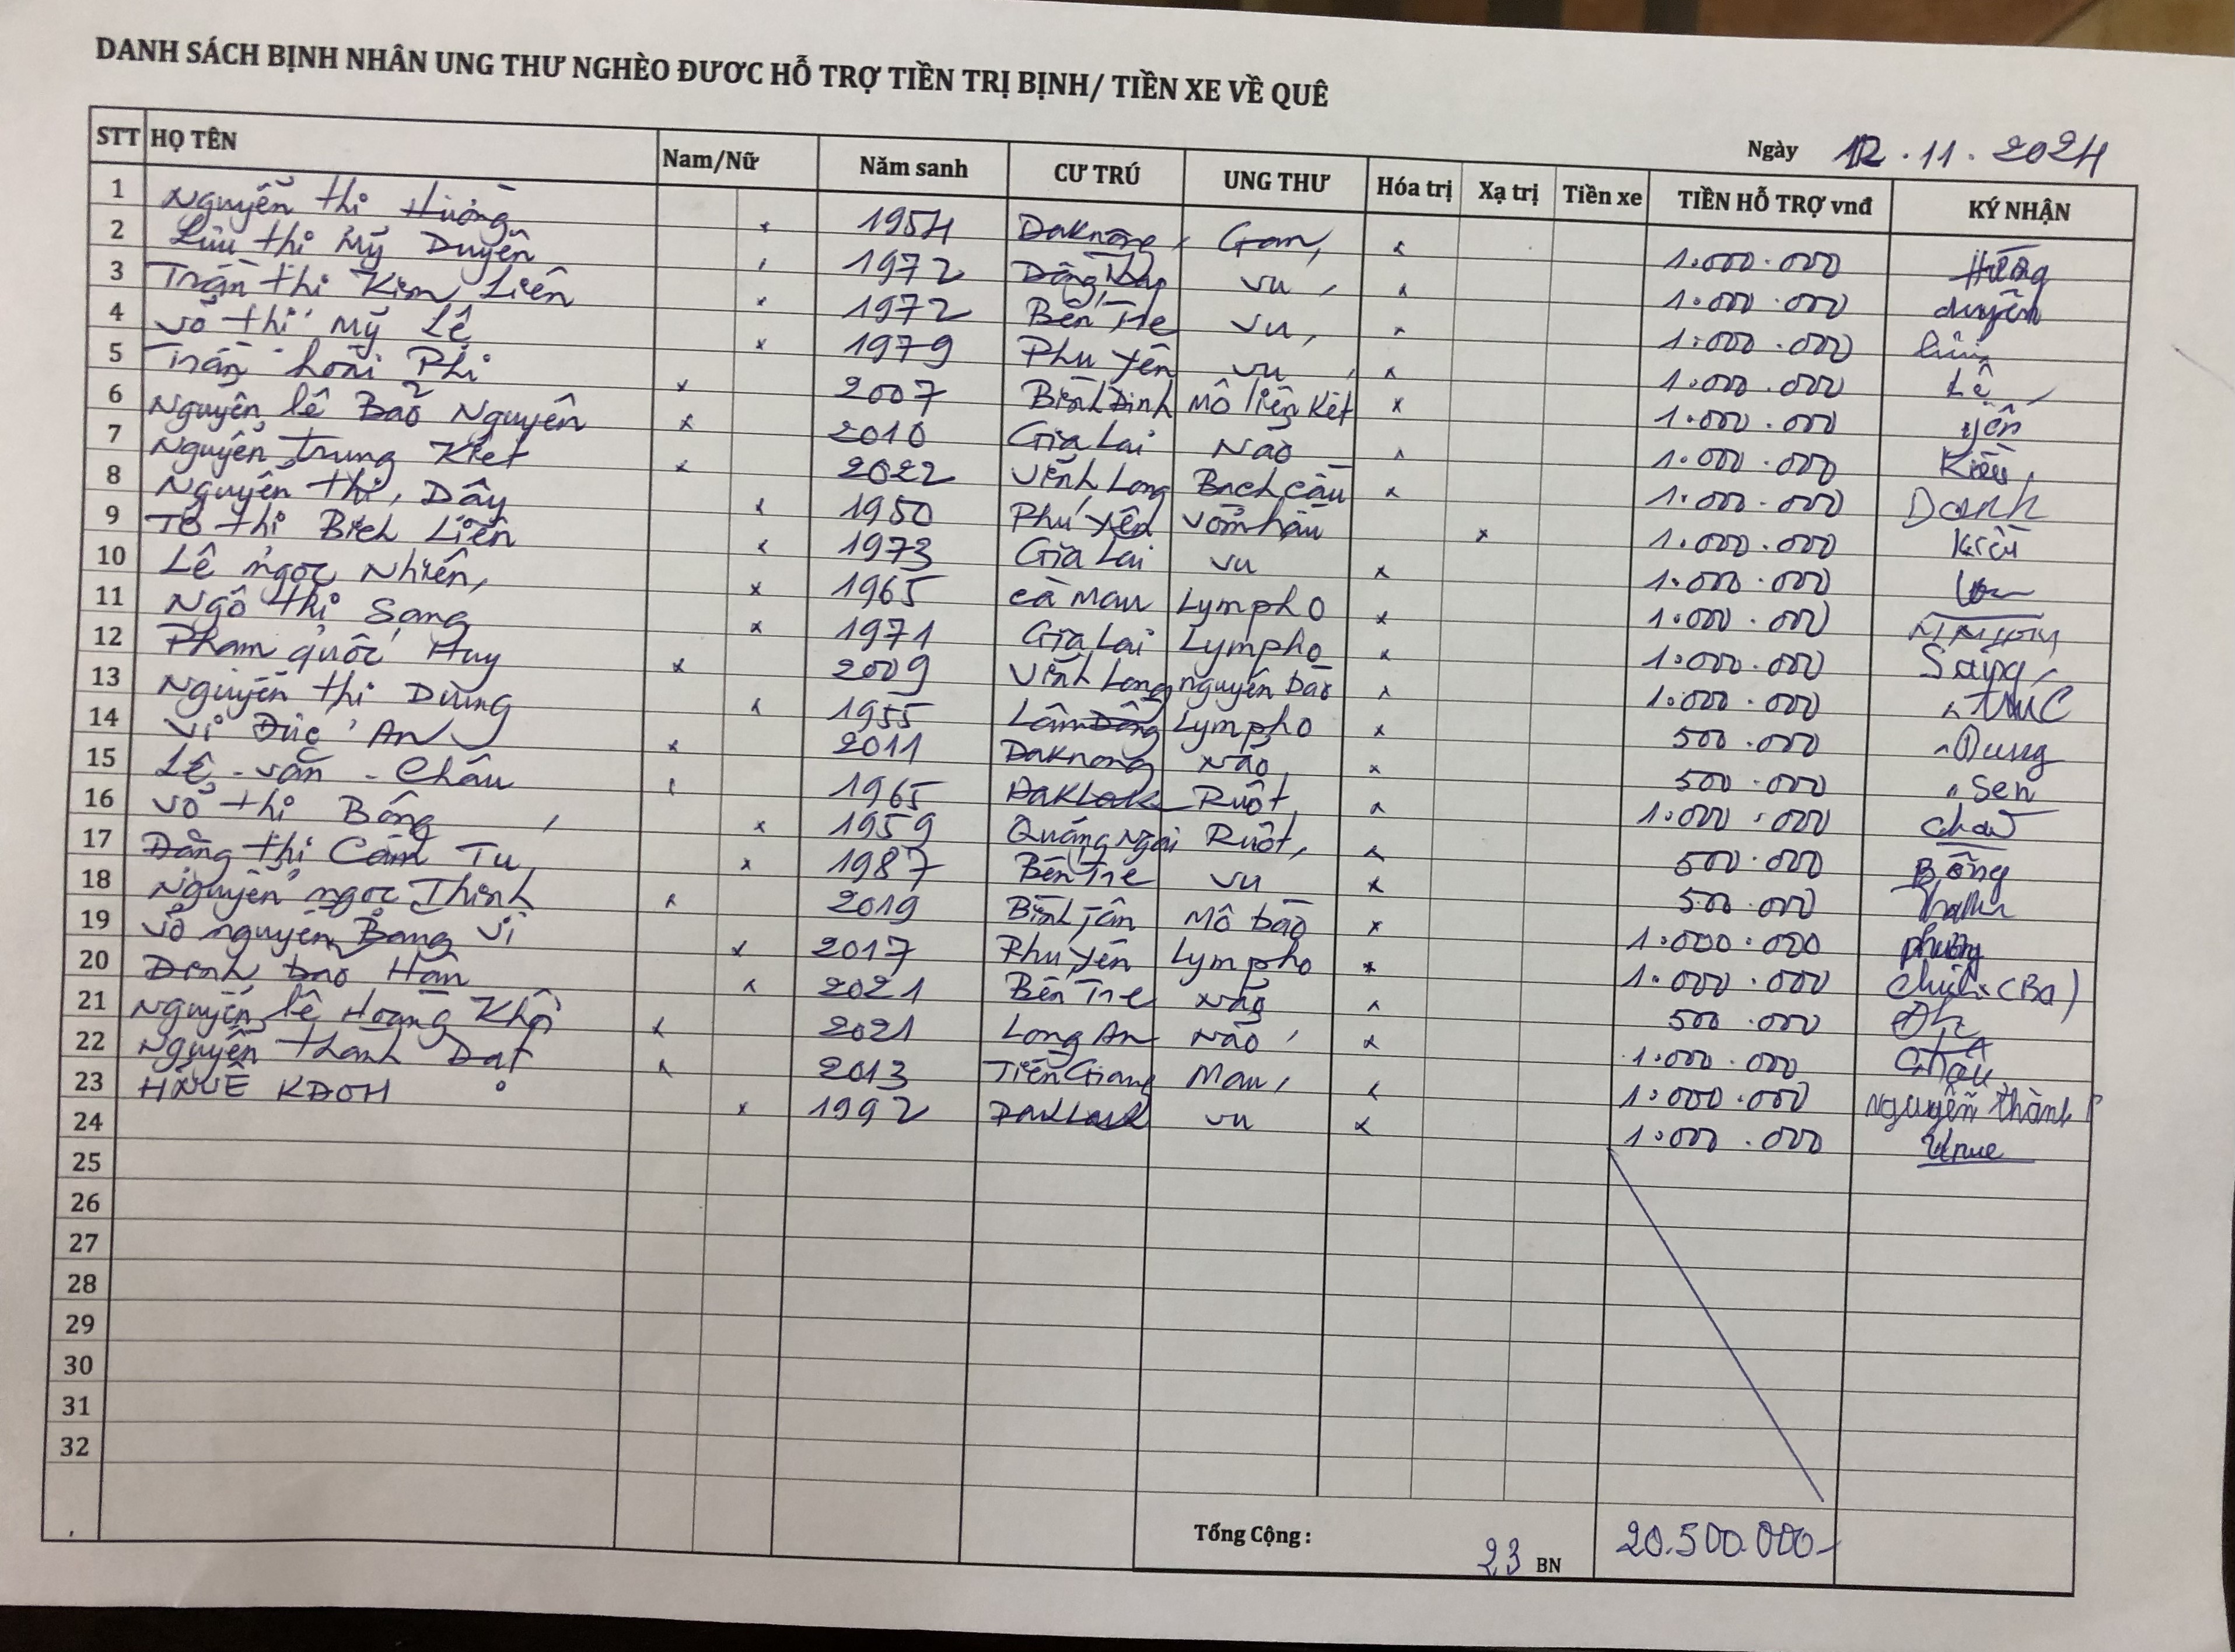 DANH SÁCH BỊNH NHÂN UNG THƯ NGHÈO ĐƯƠC HỖ TRỢ TIỀN TRỊ BỊNH/ TIỀN XE VỀ QUÊ
Ngày 12.11.2024
STT HỌ TÊN Nam/Nữ Năm sanh CƯ TRÚ UNG THƯ Hóa trị Xạ trị Tiền xe TIỀN HỖ TRỢ vnđ KÝ NHẬN
1 Nguyễn thị Hường x 1954 Daknông Gan x 1.000.000 Hường
2 Lưu thị Mỹ Duyên 1972 Đồng Nai vú x 1.000.000 duyên
3 Trần thị Kim Liên x 1972 Bến Tre vú x 1.000.000
4 Võ thị Mỹ Lệ x 1979 Phú Yên vú x 1.000.000 Lệ
5 Trần hoài Phi x 2007 Bình Định Mô liên kết x 1.000.000 yến
6 Nguyễn lê Bảo Nguyên x 2010 Gia Lai Não x 1.000.000 Kiều
7 Nguyễn trung Kiệt x 2022 Vĩnh Long Bạch cầu x 1.000.000 Danh
8 Nguyễn thị Dây x 1950 Phú Yên vòm hầu x 1.000.000 kiều
9 Tô thị Bích Liên x 1973 Gia Lai vú x 1.000.000
10 Lê ngọc Nhiên x 1965 cà Mau Lympho x 1.000.000
11 Ngô thị Sang x 1971 Gia Lai Lympho x 1.000.000 Sang
12 Phạm quốc Huy x 2009 Vĩnh Long nguyên bào x 1.000.000 TRUC
13 Nguyễn thị Dung x 1955 Lâm Đồng Lympho x 500.000 Dung
14 Vi Đức An x 2011 Daknong não x 500.000 Sen
15 Lê - văn - Châu x 1965 DAKLAK Ruột x 1.000.000 châu
16 Võ thị Bông x 1959 Quảng Ngãi Ruột x 500.000 Bông
17 Đặng thị Cẩm Tu x 1987 Bến Tre vú x 500.000
18 Nguyễn ngọc Thịnh x 2019 Bình Tân Mô bào x 1.000.000 phương
19 Võ nguyễn Băng Vi x 2017 Phú Yên Lympho x 1.000.000 (Ba)
20 Đinh bảo Hân x 2021 Bến Tre não x 500.000
21 Nguyễn lê Hoàng Khôi x 2021 Long An Não x 1.000.000 Châu
22 Nguyễn thành Đạt x 2013 Tiền Giang Máu x 1.000.000 Nguyễn thành
23 HNUÊ KĐOH x 1992 DAKLAK vú x 1.000.000 Hnue
24
25
26
27
28
29
30
31
32
Tổng Cộng : 23 BN 20.500.000-